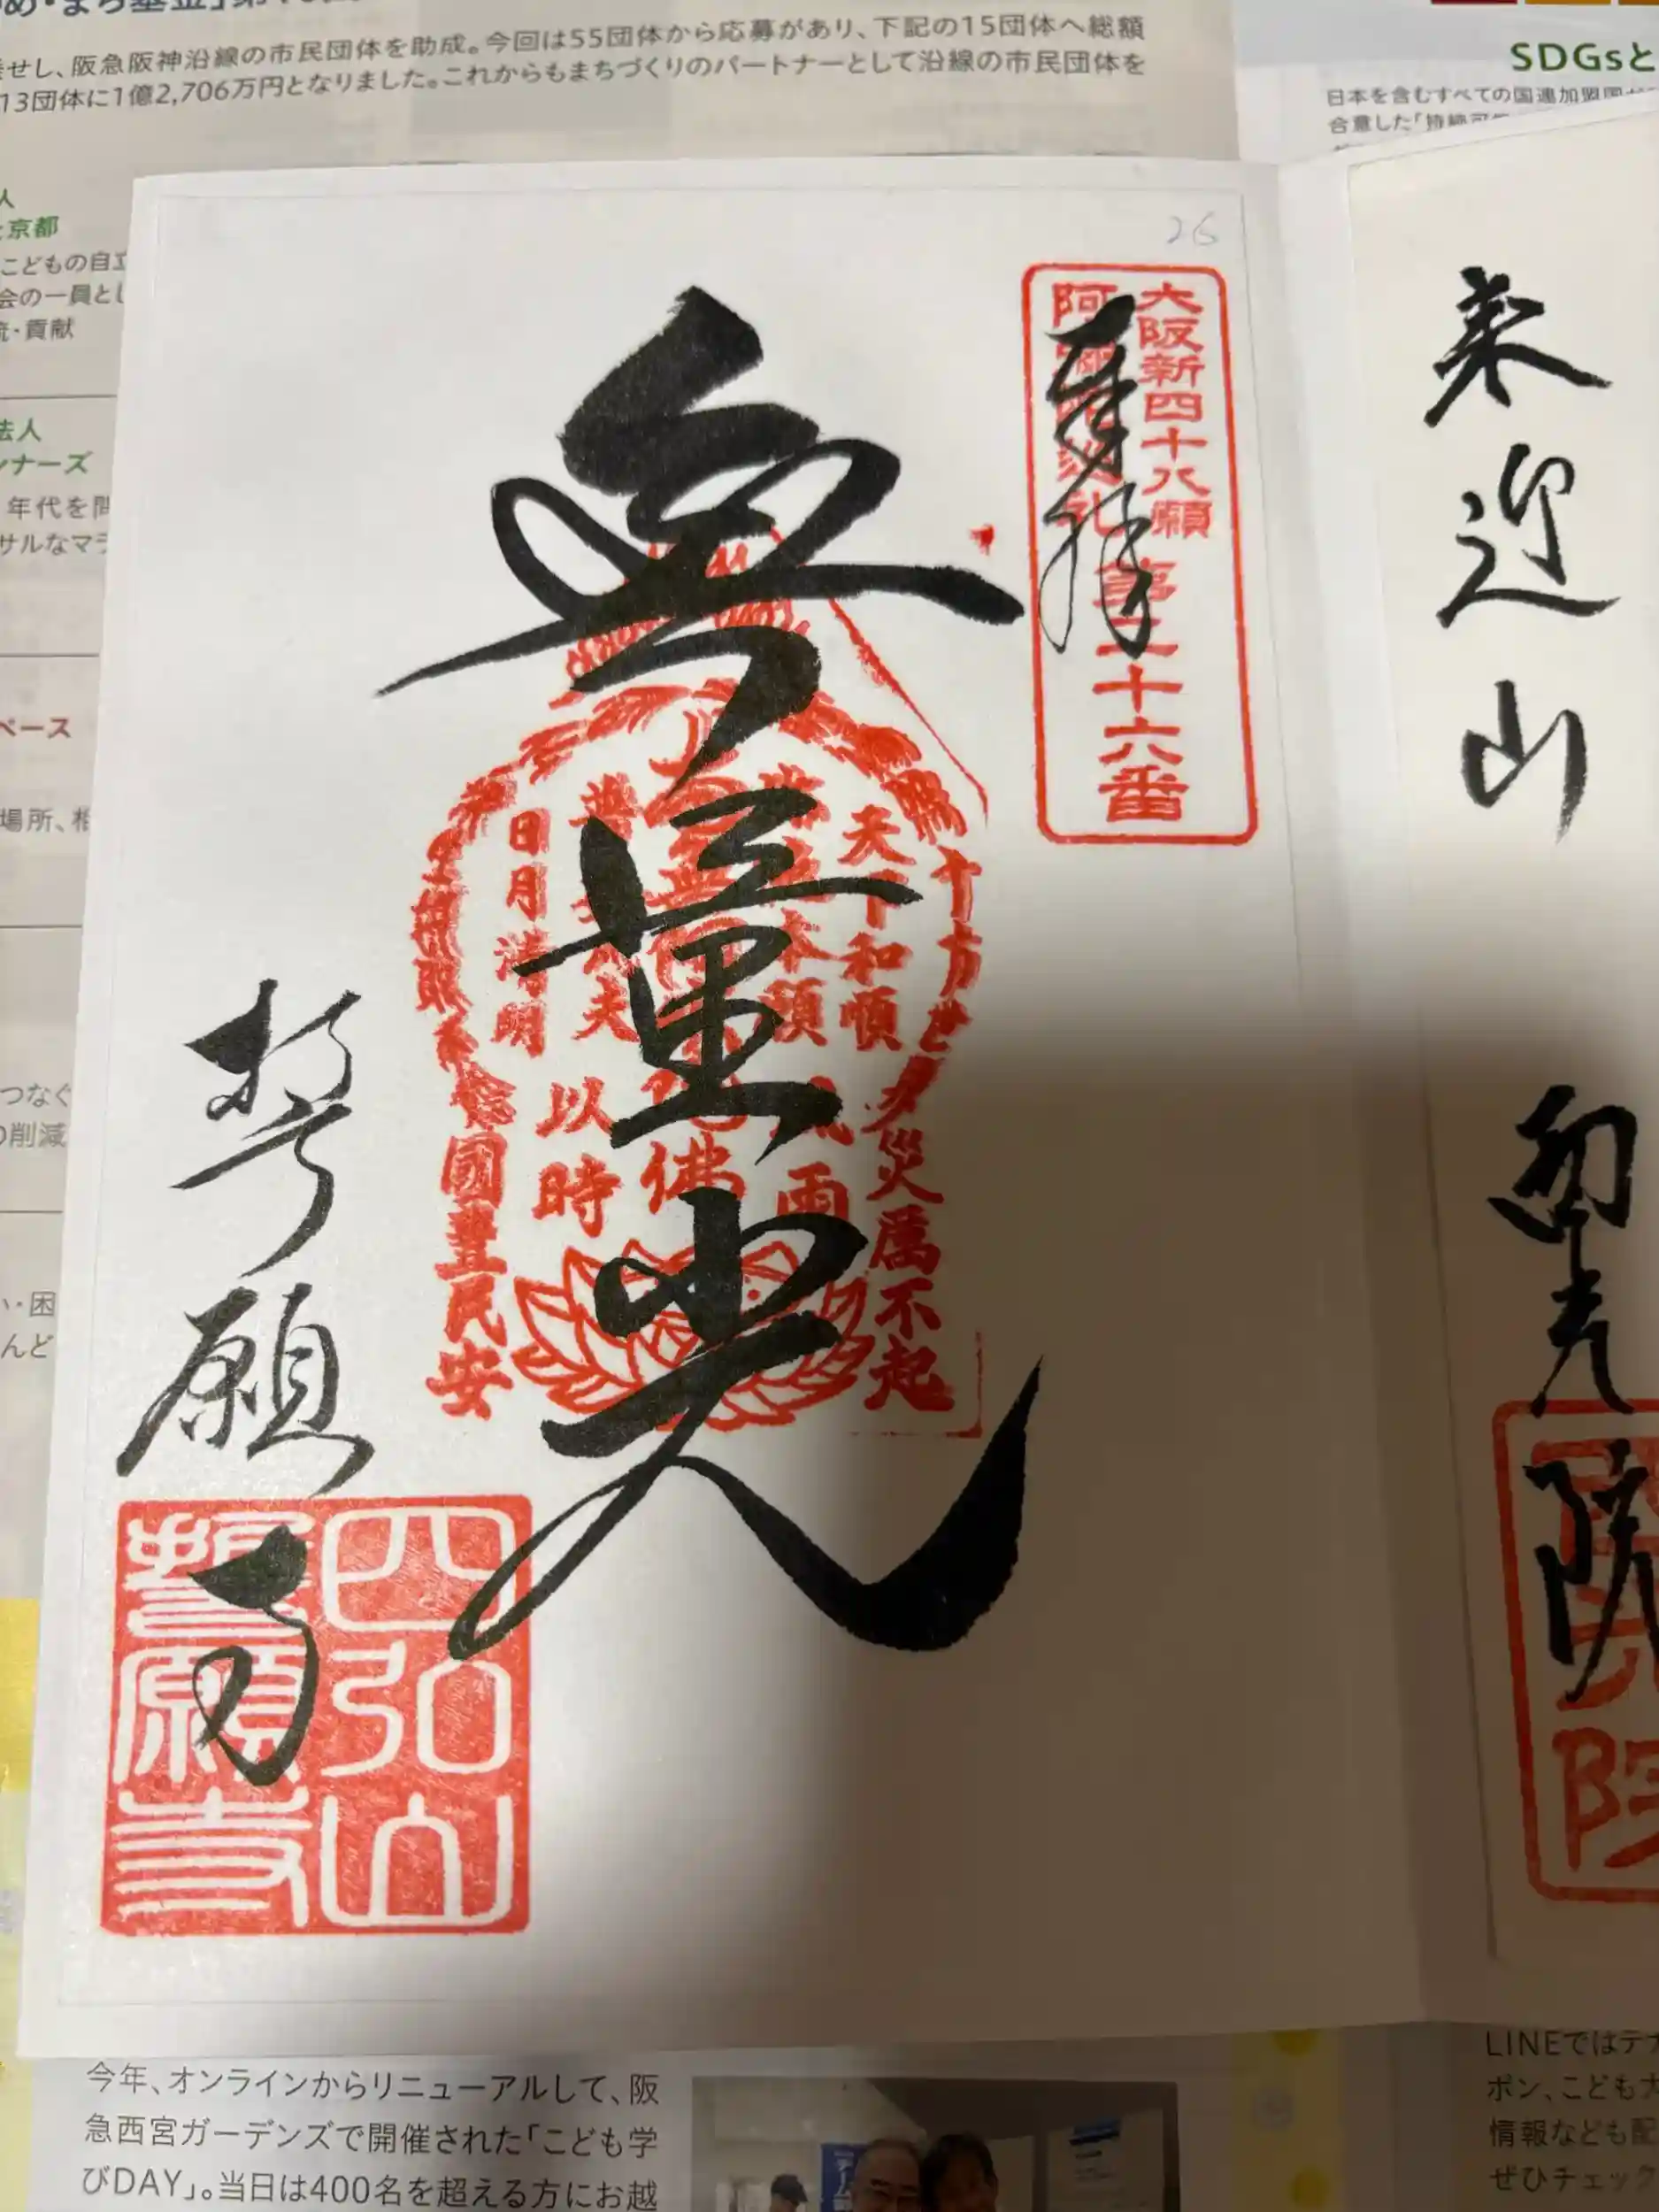 阪急阪神沿線の市民団体を助成。今回は55団体から応募があり、下記の15団体へ総額
13団体に1億2,706万円となりました。これからもまちづくりのパートナーとして沿線の市民団体を
SDGsと
日本を含むすべての国連加盟国が
合意した「持続可
人
京都
こどもの自立
会の一員とし
流・貢献
法人
ンナーズ
年代を問
サルなマラ
ペース
場所、相
つなぐ
の削減
い・困
んど
26
大阪新四十八願
阿弥陀巡礼
第二十六番
奉拝
無量光
十方世
災厲不起
天下和順
風雨
本願
佛
以時
日月清明
國豊民安
誓願寺
四弘山
誓願寺
来迎山
院
院
今年、オンラインからリニューアルして、阪
急西宮ガーデンズで開催された「こども学
びDAY」。当日は400名を超える方にお越
LINEではテ
ポン、こども大
情報なども配
ぜひチェック